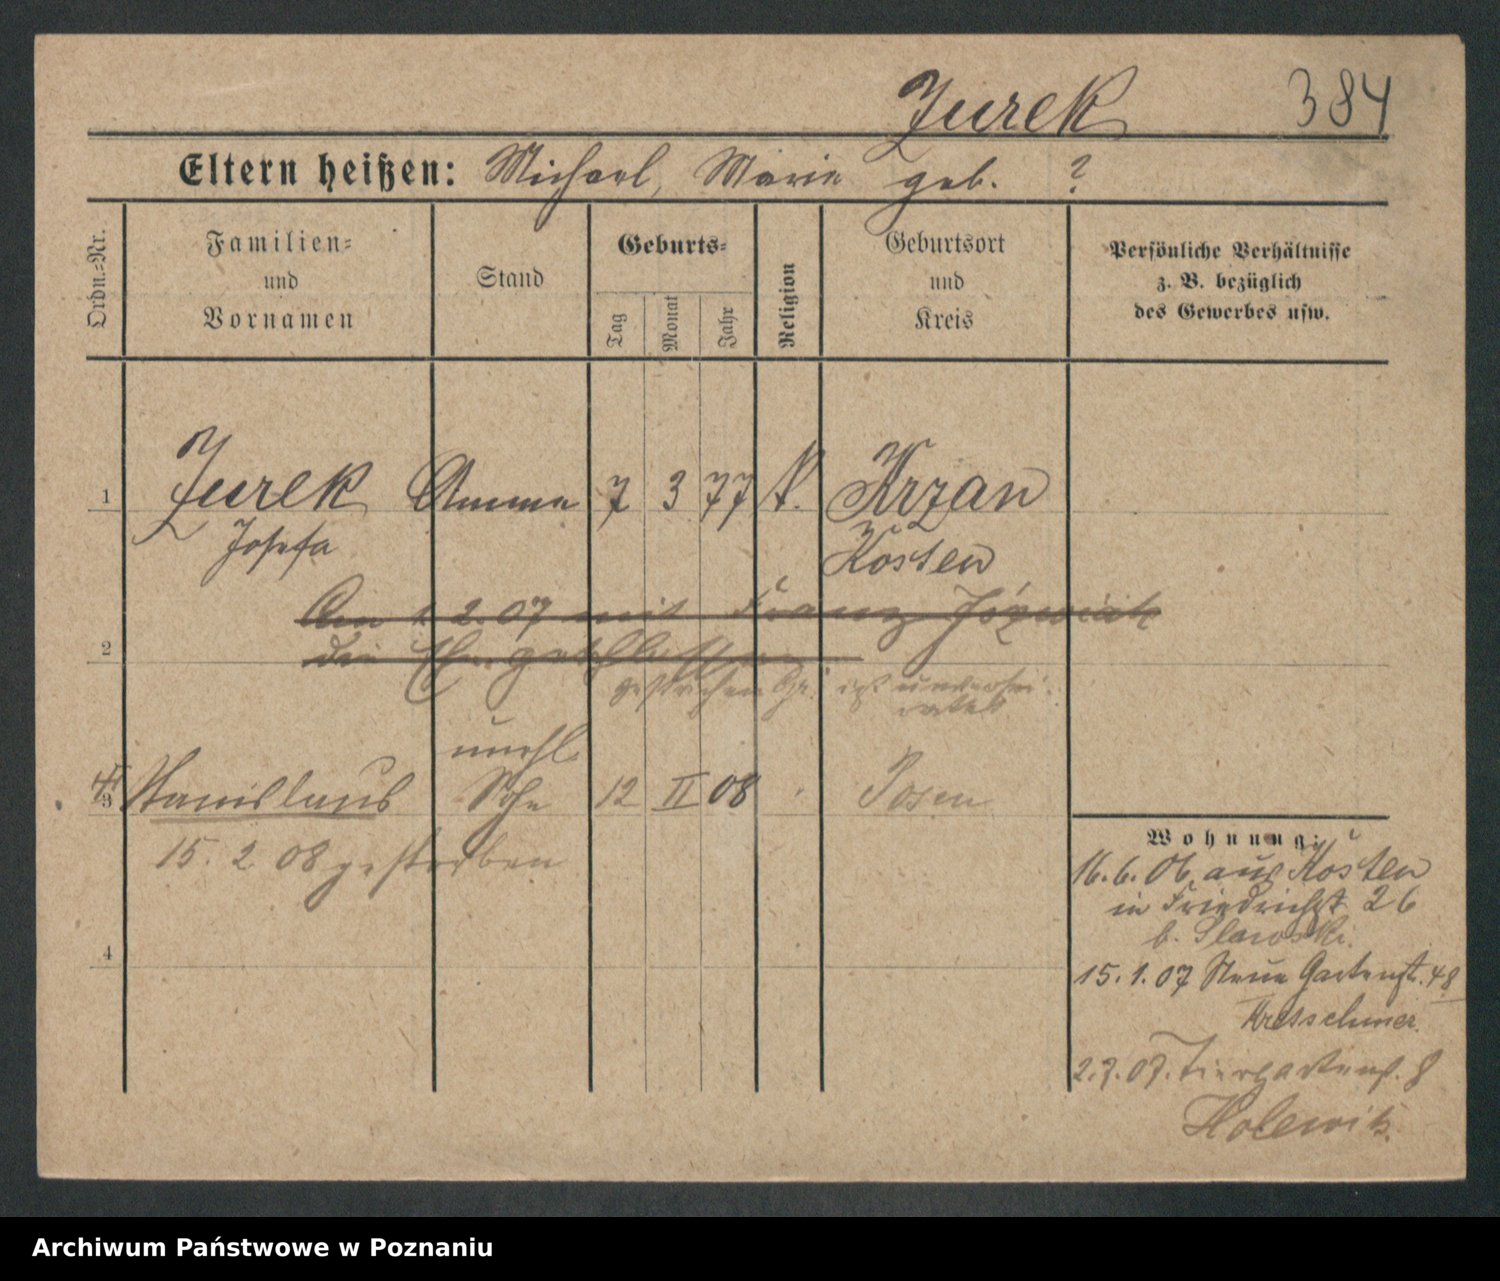 Jurek 384
Eltern heißen: Michael, Marie geb. ?
Ordn.=Nr.
Familien=
und
Vornamen
Stand
Geburts=
Tag
Monat
Jahr
Religion
Geburtsort
und
Kreis
Persönliche Verhältnisse
z. B. bezüglich
des Gewerbes usw.
1 Jurek Amme 7 3 77 k. Krzan
Josefa Kosten
Am 2.07 mit Franz Józwiak
2 die Ehe geschlossen
gestrichen ist unverhei-
ratet
unehl.
3 Stanislaus Sohn 12 II 08 Posen
15. 2 08 gestorben
4
Wohnung:
16.6.06 aus Kosten
in Friedrichst 26
b. Slawski.
15.1.07 Neue Gartenst. 48
Kretschmer.
2.7.07. Tiergartenst. 8